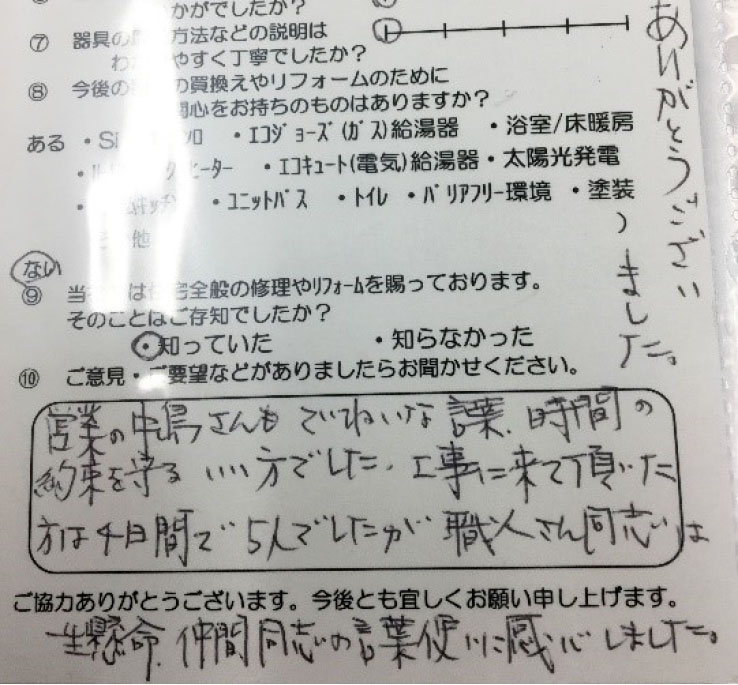 かがでしたか？
⑦ 器具の 方法などの説明は
わ やすく丁寧でしたか？
⑧ 今後の の買換えやリフォームのために
関心をお持ちのものはありますか？
ある ・Si ・エコジョーズ(ガス)給湯器 ・浴室/床暖房
・ ヒーター ・エコキュート(電気)給湯器 ・太陽光発電
・ キッチン ・ユニットバス ・トイレ ・バリアフリー環境 ・塗装
他 )
ない
⑨ 当 は 宅全般の修理やリフォームを賜っております。
そのことはご存知でしたか？
・知っていた ・知らなかった
⑩ ご意見・ご要望などがありましたらお聞かせください。
営業の中島さんもていねいな言葉、時間の
約束を守るいい方でした。工事に来て頂いた
方は4日間で5人でしたが職人さん同志は
ご協力ありがとうございます。今後とも宜しくお願い申し上げます。
一生懸命、仲間同志の言葉使いに感心しました。
ありがとうござい
ました。